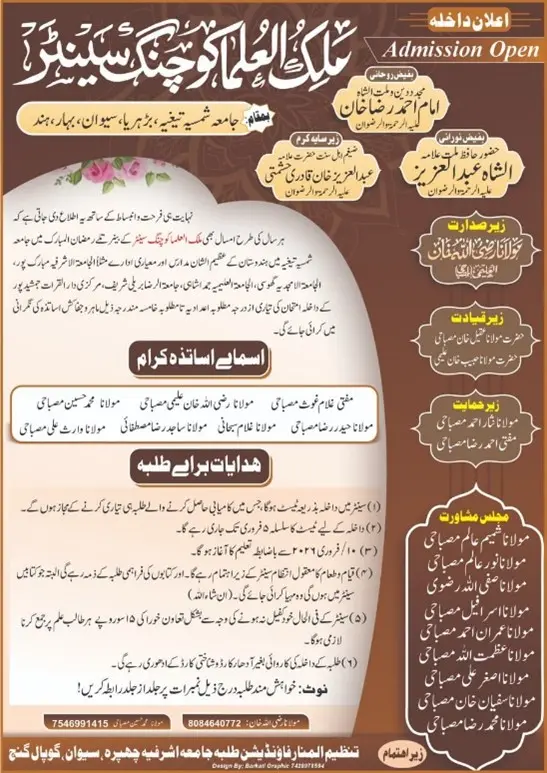 اعلان داخلہ
Admission Open
ملک العلما کوچنگ سینٹر
بمقام: جامعہ شمسیہ تیغیہ، بڑہریا، سیوان، بہار، ہند
بفیض روحانی
مجدد دین و ملت الشاہ
امام احمد رضا خان
علیہ الرحمۃ والرضوان
بفیض نورانی
حضور حافظ ملت علامہ
الشاہ عبدالعزیز
علیہ الرحمۃ والرضوان
زیر سایہ کرم
ضیغم اہل سنت حضرت علامہ
عبدالعزیز خان قادری چشتی
علیہ الرحمۃ والرضوان
نہایت ہی فرحت و انبساط کے ساتھ یہ اطلاع دی جاتی ہے کہ
ہر سال کی طرح امسال بھی ملک العلما کوچنگ سینٹر کے بینر تحت رمضان المبارک میں جامعہ
شمسیہ تیغیہ میں ہندوستان کے عظیم الشان مدارس اور معیاری ادارے مثلاً الجامعۃ الاشرفیہ مبارک پور،
الجامعۃ الامجدیہ گھوسی، جامعۃ العلیمیہ جمدا شاہی، جامعۃ الرضا بریلی شریف، مرکزی دار القرات جمشید پور
کے داخلہ امتحان کی تیاری از درجہ مطلوبہ اعدادیہ تا مطلوبہ خامسہ مندرجہ ذیل ماہر و جفاکش اساتذہ کی نگرانی
میں کرائی جائے گی۔
اسمائے اساتذہ کرام
مفتی غلام غوث مصباحی مولانا رضی اللہ خان علیمی مصباحی مولانا محمد حسین مصباحی
مولانا حیدر رضا مصباحی مولانا غلام سبحانی مولانا ساجد رضا مصطفائی مولانا وارث علی مصباحی
ہدایات برائے طلبہ
(۱) سینٹر میں داخلہ بذریعہ ٹیسٹ ہوگا، جس میں کامیابی حاصل کرنے والے طلبہ ہی تیاری کرنے کے مجاز ہوں گے۔
(۲) داخلہ کے لیے ٹیسٹ کا سلسلہ ۵ فروری تک جاری رہے گا۔
(۳) ۱۰/ فروری ۲۰۲۶ سے باضابطہ تعلیم کا آغاز ہوگا۔
(۴) قیام و طعام کا معقول انتظام سینٹر کے زیر اہتمام رہے گا۔ اور کتابوں کی فراہمی طلبہ کے ذمہ رہے گی البتہ جو کتابیں
سینٹر میں ہوں گی وہ مہیا کرائی جائے گی۔ (ان شاء اللہ)
(۵) سینٹر کے فی الحال خود کفیل نہ ہونے کی وجہ سے بشکل تعاون خوراکی ۱۵ سو روپے ہر طالب علم پر جمع کرنا
لازمی ہوگا۔
(۶) طلبہ کے داخلہ کی کاروائی بغیر آدھار کارڈ و شناختی کارڈ کے ادھوری رہے گی۔
نوٹ: خواہش مند طلبہ درج ذیل نمبرات پر جلد از جلد رابطہ کریں!
مولانا رضی اللہ خان: 8084640772
مولانا محمد حسین مصباحی 7546991415
زیر صدارت
مولانا رضی اللہ خان
العلیمی المصباحی
زیر قیادت
حضرت مولانا عقیل خان مصباحی
حضرت مولانا حبیب خان علیمی
زیر حمایت
مولانا نثار احمد مصباحی
مفتی احمد رضا مصباحی
مجلس مشاورت
مولانا شمیم عالم مصباحی
مولانا نور عالم مصباحی
مولانا صفی اللہ رضوی
مولانا اسرائیل مصباحی
مولانا عمران احمد مصباحی
مولانا عظمت اللہ مصباحی
مولانا اصغر علی مصباحی
مولانا سفیان خان مصباحی
مولانا محمد رضا مصباحی
زیر اہتمام
تنظیم المنار فاؤنڈیشن طلبہ جامعہ اشرفیہ چھپرہ، سیوان، گوپال گنج
Design By: Barkati Graphic 7428978594